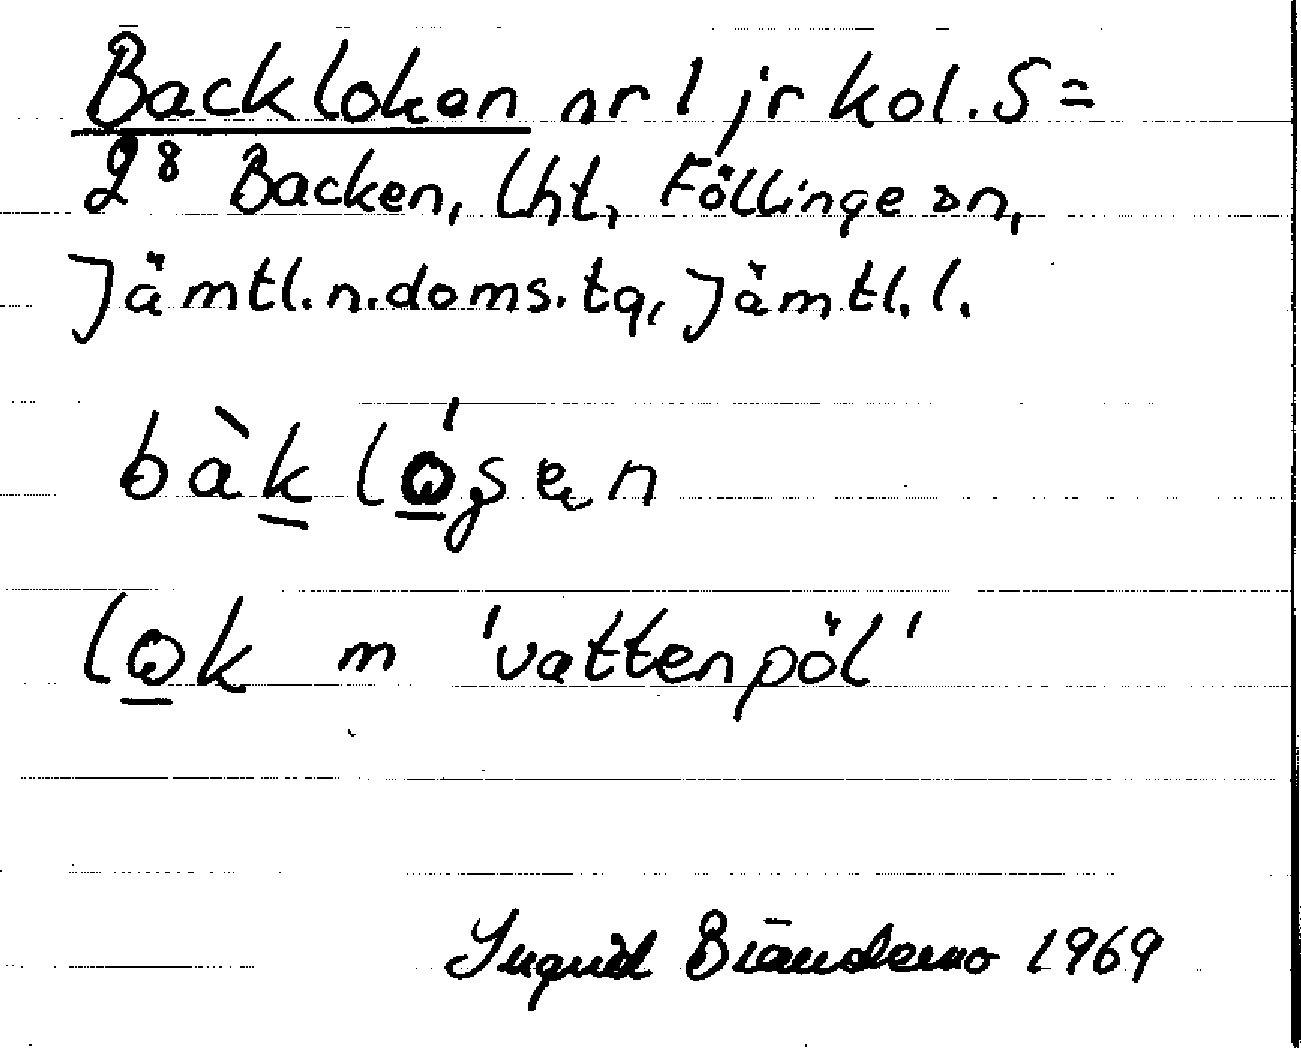 Backloken nr 1 jr kol. S =
2⁸ Backen, lht, Föllinge sn,
Jämtl. n. doms. tq, Jämtl. l.
bàk lǫ́gen
lǫk m 'vattenpöl'
Ingrid 1969